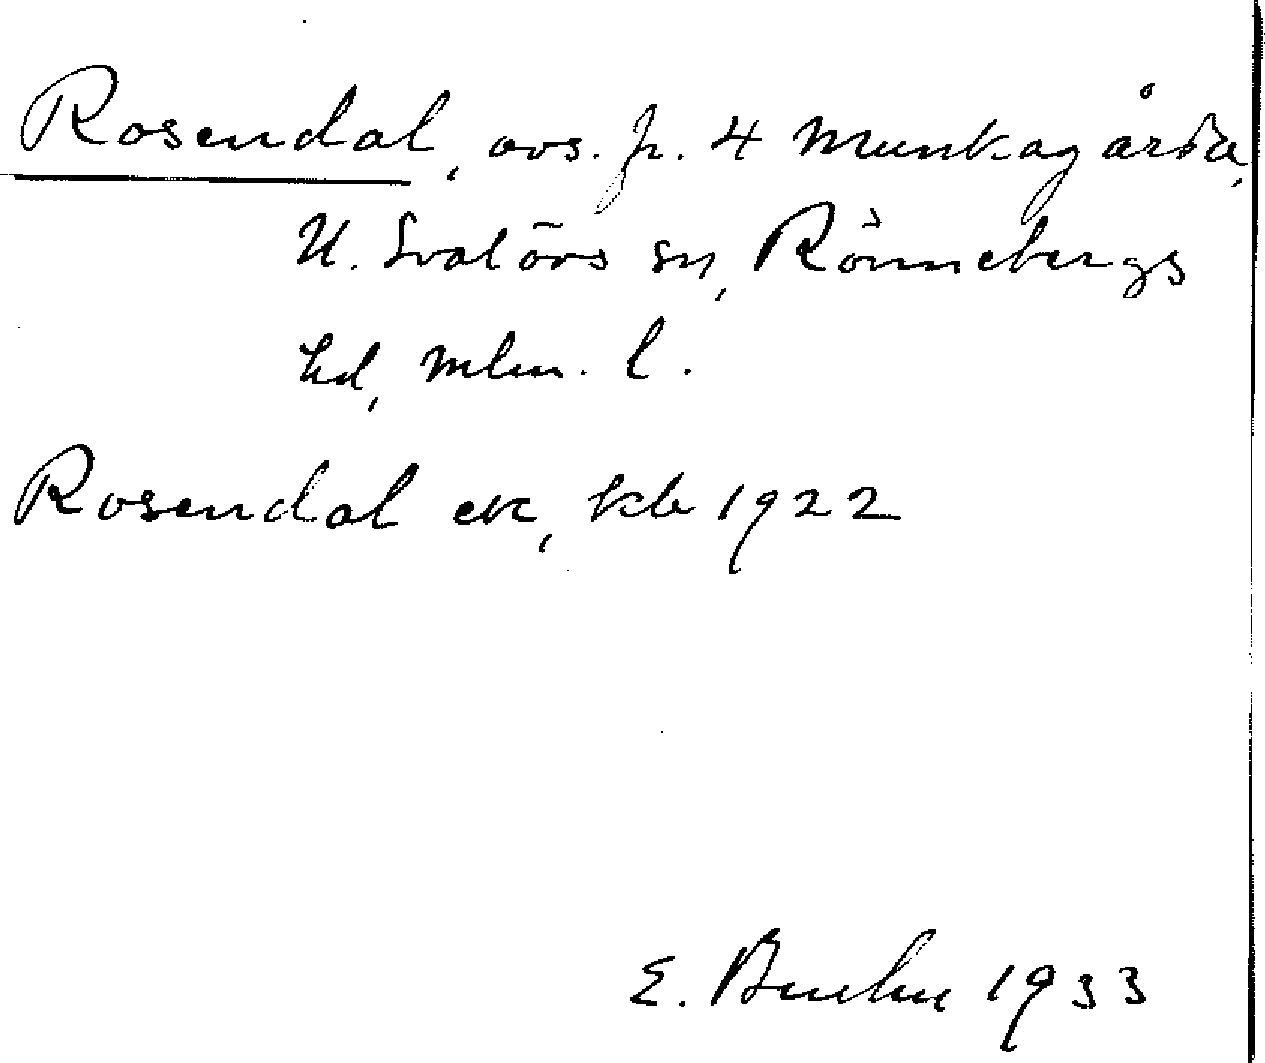 Rosendal, avs. fr. 4 Munkagårda,
N. Svalövs sn, Rönnebergs
hd, Mlm. l.
Rosendal ek, kb 1922
E. 1933